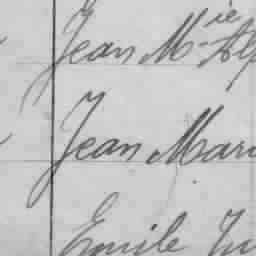 Jean M^ie Alp
Jean Mari
Emile